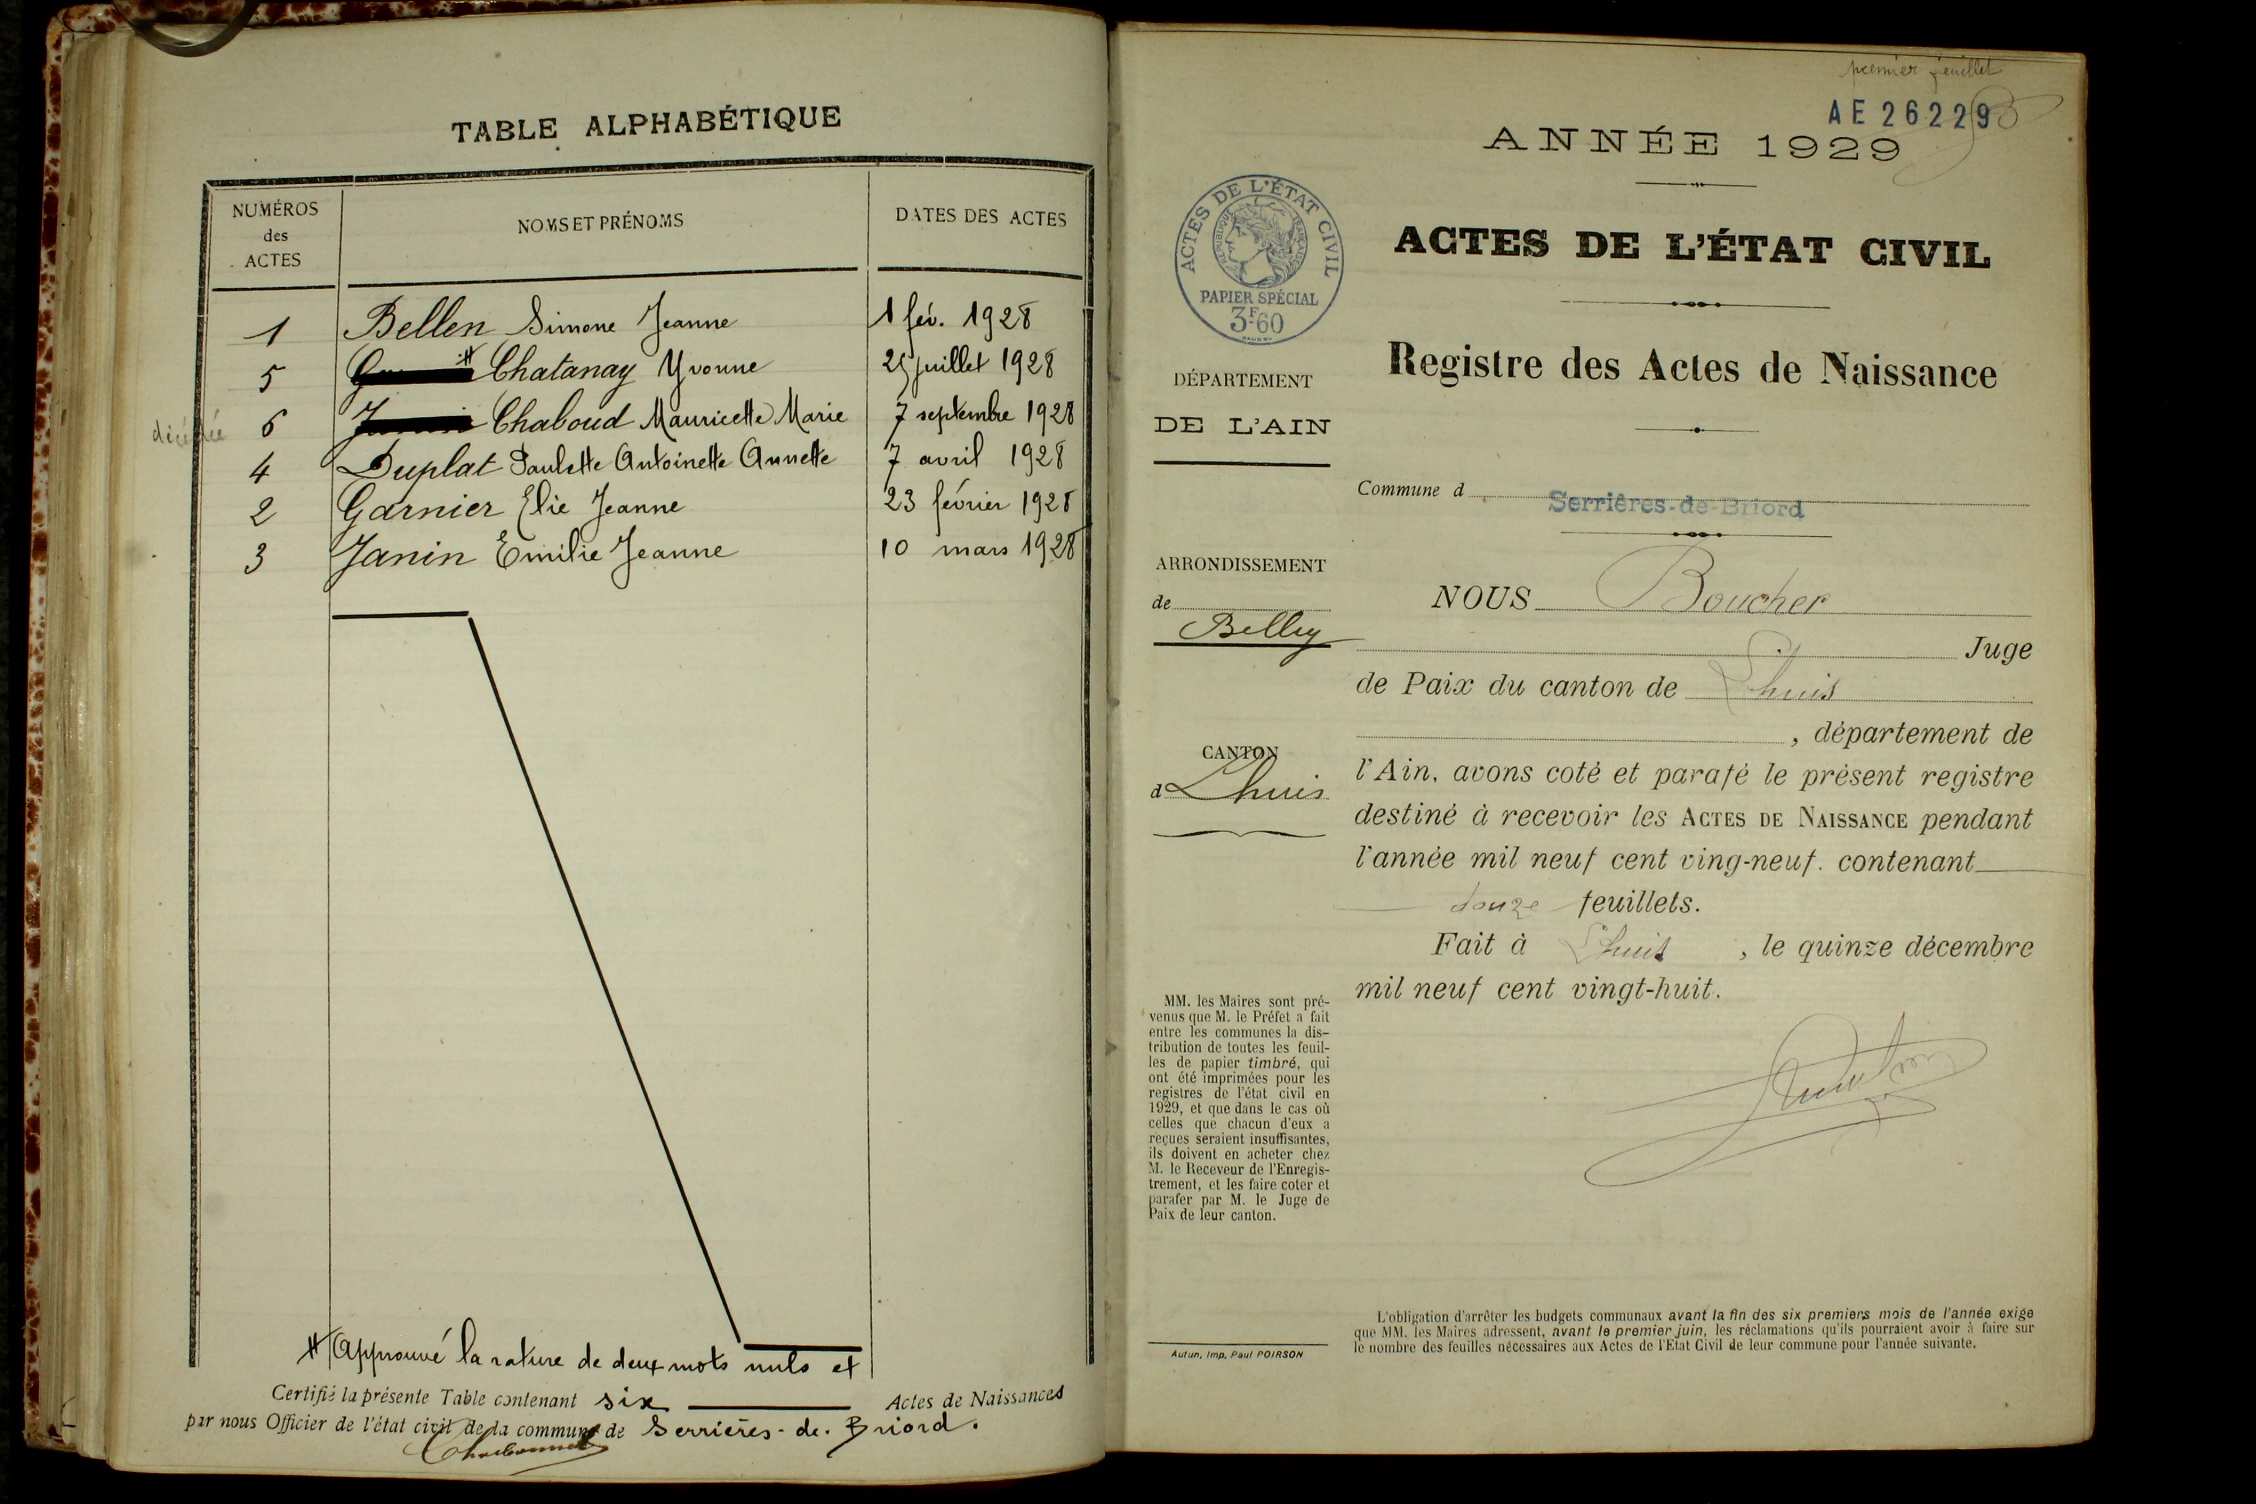 TABLE ALPHABÉTIQUE
NUMÉROS
des
ACTES
NOMS ET PRÉNOMS
DATES DES ACTES
1 Bellen Simone Jeanne 1 fév. 1928
5 # Chatanay Yvonne 25 juillet 1928
décédée 6 Chaboud Mauricette Marie 7 septembre 1928
4 Duplat Paulette Antoinette Annette 7 avril 1928
2 Garnier Elie Jeanne 23 février 1928
3 Janin Emilie Jeanne 10 mars 1928
# Approuvé la rature de deux mots nuls et
Certifié la présente Table contenant six Actes de Naissances
par nous Officier de l'état civil de la commune de Serrières-de-Briord.
premier feuillet
AE 26229
ANNÉE 1929
ACTES DE L'ÉTAT CIVIL
RÉPUBLIQUE FRANÇAISE
PAPIER SPÉCIAL
3F60
ACTES DE L'ÉTAT CIVIL
Registre des Actes de Naissance
DÉPARTEMENT
DE L'AIN
Commune d Serrières-de-Briord
ARRONDISSEMENT
de
Belley
CANTON
d Lhuis
NOUS Boucher
Juge
de Paix du canton de Lhuis
, département de
l'Ain, avons coté et parafé le présent registre
destiné à recevoir les ACTES DE NAISSANCE pendant
l'année mil neuf cent ving-neuf. contenant
douze feuillets.
Fait à Lhuis, le quinze décembre
mil neuf cent vingt-huit.
MM. les Maires sont pré-
venus que M. le Préfet a fait
entre les communes la dis-
tribution de toutes les feuil-
les de papier timbré, qui
ont été imprimées pour les
registres de l'état civil en
1929, et que dans le cas où
celles que chacun d'eux a
reçues seraient insuffisantes,
ils doivent en acheter chez
M. le Receveur de l'Enregis-
trement, et les faire coter et
parafer par M. le Juge de
Paix de leur canton.
Autun, Imp. Paul POIRSON
L'obligation d'arrêter les budgets communaux avant la fin des six premiers mois de l'année exige
que MM. les Maires adressent, avant le premier juin, les réclamations qu'ils pourraient avoir à faire sur
le nombre des feuilles nécessaires aux Actes de l'Etat Civil de leur commune pour l'année suivante.